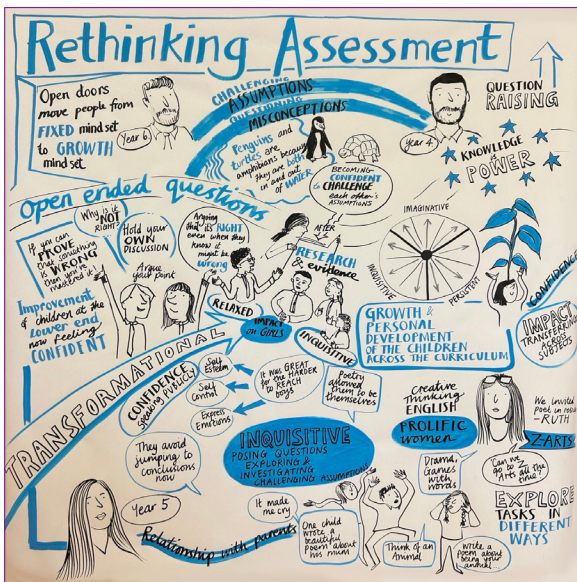 Rethinking Assessment
Open doors
move people from
FIXED mindset
to GROWTH
mindset
Year 6
CHALLENGING
ASSUMPTIONS
QUESTIONING
MISCONCEPTIONS
Penguins and
turtles are
amphibians because
they are both
in and out
of WATER
BECOMING
CONFIDENT
to CHALLENGE
each other's
ASSUMPTIONS
Year 4
QUESTION
RAISING
KNOWLEDGE
is
POWER
Open ended questions
If you can
PROVE
that something
is WRONG
then you've
mastered it!
Why is it
NOT
RIGHT?
Hold your
OWN
DISCUSSION
Argue
your point
Arguing
that it's RIGHT
even when they
know it
might be
wrong
AFTER
RESEARCH
& evidence
IMAGINATIVE
INQUISITIVE
PERSISTENT
CONFIDENCE
Improvement
of children at the
lower end
now feeling
CONFIDENT
RELAXED
IMPACT
on GIRLS
INQUISITIVE
GROWTH &
PERSONAL
DEVELOPMENT
OF THE CHILDREN
ACROSS THE CURRICULUM
IMPACT
TRANSFERRING
ACROSS
SUBJECTS
TRANSFORMATIONAL
CONFIDENCE
Speaking PUBLICLY
Self
Esteem
Self
Control
Express
Emotions
It was GREAT
for the HARDER
to REACH
boys
Poetry
allowed
them to be
themselves
Creative
Thinking
ENGLISH
PROLIFIC
women
We invited
poet in
- RUTH
Z-ARTS
"Can we
go to Z
Arts all the
time!"
They avoid
jumping to
conclusions
now
INQUISITIVE
POSING QUESTIONS
EXPLORING &
INVESTIGATING
CHALLENGING ASSUMPTIONS
Drama,
Games
with
words
EXPLORE
TASKS IN
DIFFERENT
WAYS
Year 5
It made
me cry
Relationship with parents
One child
wrote a
beautiful
poem about
his mum
Think of an
Animal
Write a
poem about
being your
animal